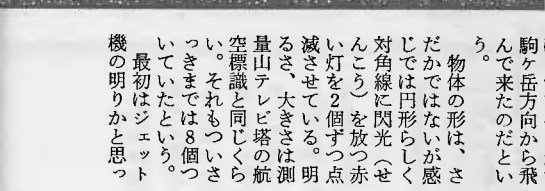 駒ヶ岳方向から飛
んで来たのだとい
う。
物体の形は、さ
だかではないが感
じでは円形らしく
対角線に閃光（せ
んこう）を放つ赤
い灯を２個ずつ点
滅させている。明
るさ、大きさは測
量山テレビ塔の航
空標識と同じくら
い。それもついさ
っきまでは８個つ
いていたという。
最初はジェット
機の明りかと思っ